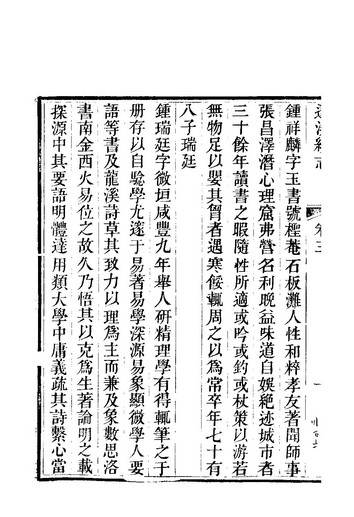 卷三
鍾祥麟字玉書號樫菴石板灘人性和粹孝友著聞師事
張昌澤潛心理窟弗營名利晚益味道自娛絕迹城市者
三十餘年讀書之暇隨性所適或吟或釣或杖策以游若
無物足以嬰其胷者遇寒餒輒周之以爲常卒年七十有
八子瑞廷
鍾瑞廷字微垣咸豐九年舉人研精理學有得輒筆之于
册存以自驗學尤邃于易著易學深源易象顯微學人要
語等書及龍溪詩草其致力以理爲主而兼及象數思洛
書南金西火易位之故久乃悟其以克爲生著論明之載
探源中其要語明體達用類大學中庸義疏其詩繫心當